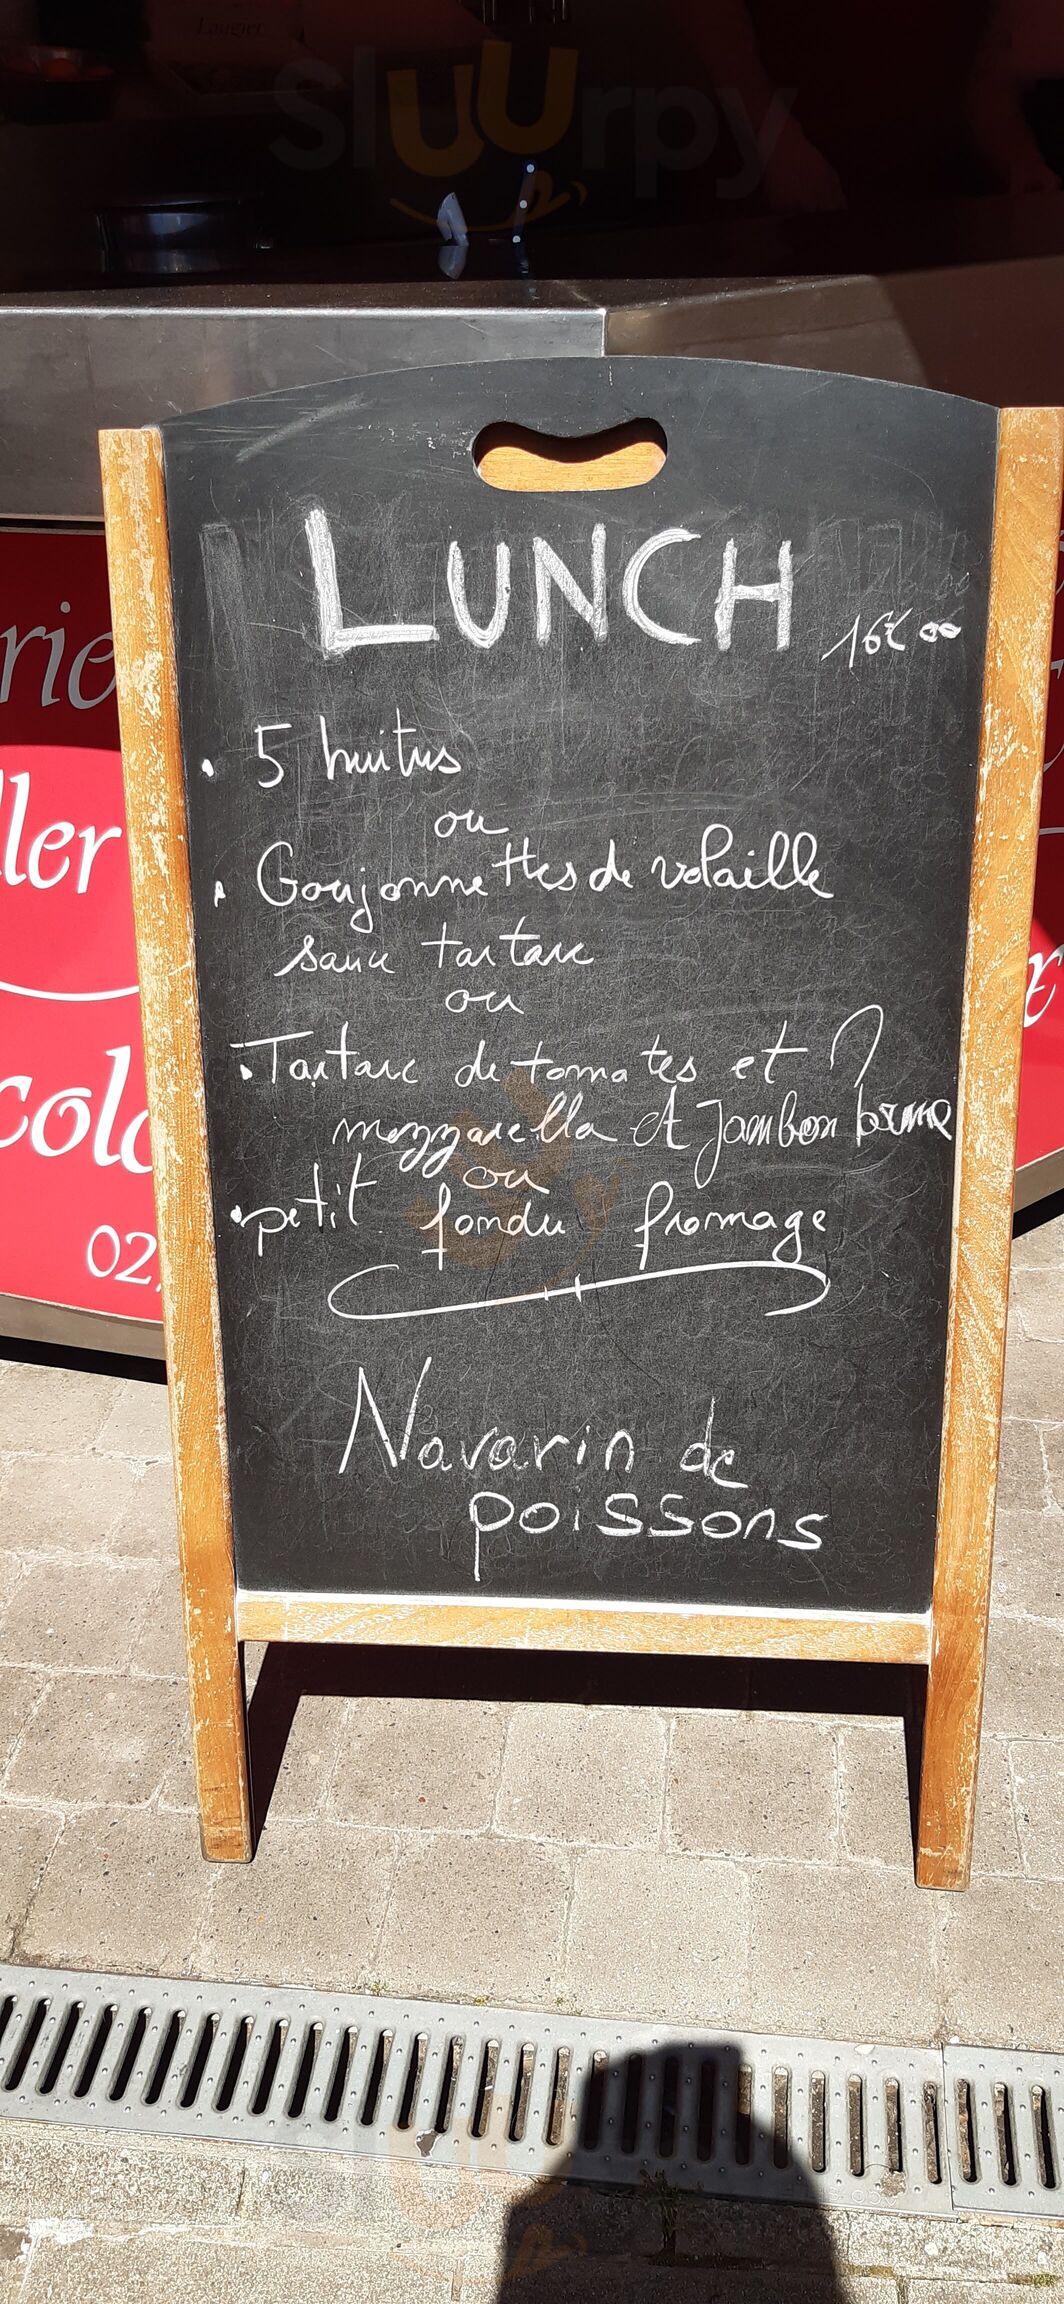 Laugier
Sluurpy
LUNCH
16€00
• 5 huitres
ou
• Goujonnettes de volaille
sauce tartare
ou
• Tartare de tomates et
mozzarella et jambon
ou
• petit fondu fromage
Navarin de
poissons
rie
ller
cola
02,